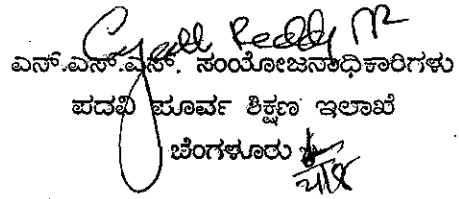 Reddy
ಎನ್.ಎಸ್.ಎಸ್. ಸಂಯೋಜನಾಧಿಕಾರಿಗಳು
ಪದವಿ ಪೂರ್ವ ಶಿಕ್ಷಣ ಇಲಾಖೆ
ಬೆಂಗಳೂರು